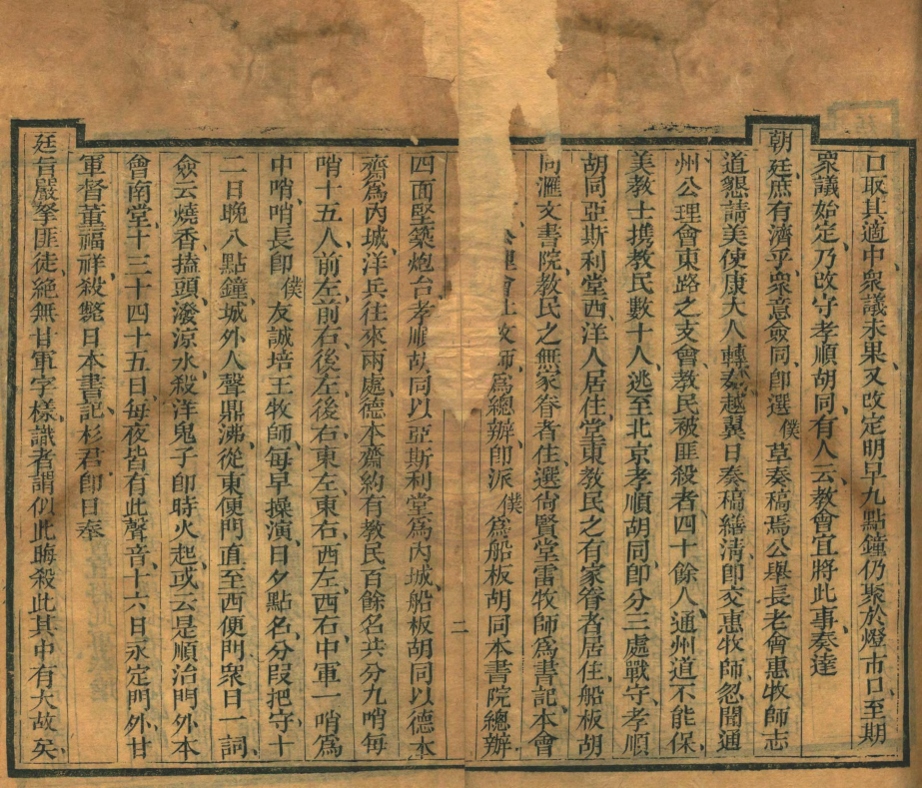 口取其適中衆議未果又改定明早九點鐘仍聚於燈市口至期
衆議始定乃改守孝順胡同有人云教會宜將此事奏達
朝廷庶有濟乎衆意僉同卽選僕草奏稿焉公舉長老會惠牧師志
道懇請美使康大人轉奏越翼日奏稿繕清卽交惠牧師忽聞通
州公理會東路之支會教民被匪殺者四十餘人通州道不能保
美教士携教民數十人逃至北京孝順胡同卽分三處戰守孝順
胡同亞斯利堂西洋人居住堂東教民之有家眷者居住船板胡
同滙文書院教民之無家眷者住選尙賢堂雷牧師爲書記本會
理會牧師爲總辦卽派僕爲船板胡同本書院總辦
二
四面堅築炮台孝順胡同以亞斯利堂爲內城船板胡同以德本
齋爲內城洋兵往來兩處德本齋約有教民百餘名共分九哨每
哨十五人前左前右後左後右東左東右西左西右中軍一哨爲
中哨哨長卽僕友誠培王牧師每早操演日夕點名分段把守十
二日晚八點鐘城外人聲鼎沸從東便門直至西便門衆日一詞
僉云燒香搕頭潑涼水殺洋鬼子卽時火起或云是順治門外本
會南堂十三十四十五日每夜皆有此聲音十六日永定門外甘
軍督董福祥殺斃日本書記杉君卽日奉
廷旨嚴拏匪徒絕無甘軍字樣識者謂似此晦殺此其中有大故矣